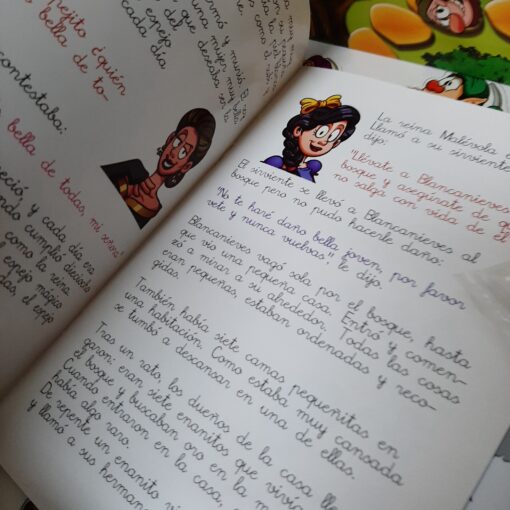 ejito ¿quién
bella de to-
contestaba:
bella de todas, mi señora"
reció y cada día era
cumplió dieciséis
como la reina
el espejo mágico
el espejo
y murió. El rey
una mujer muy bella
que deseaba ser la
espejo
cada día
La reina Malévola
llamó a su sirviente
dijo:
"Llévate a Blancanieves al
bosque y asegúrate de que
no salga con vida de él
El sirviente se llevó a Blancanieves al
bosque pero no pudo hacerle daño:
"No te haré daño bella joven, por favor
vete y nunca vuelvas", le dijo.
Blancanieves vagó sola por el bosque, hasta
que vio una pequeña casa. Entró y comen-
zó a mirar a su alrededor. Todas las cosas
eran pequeñas, estaban ordenadas y reco-
gidas.
También había siete camas pequeñitas en
una habitación. Como estaba muy cansada
se tumbó a descansar en una de ellas.
Tras un rato, los dueños de la casa lle-
garon, eran siete enanitos que vivía
el bosque y buscaban oro en la m
Cuando entraron en la casa,
había algo raro.
De repente un enanito vi
y llamó a sus herman